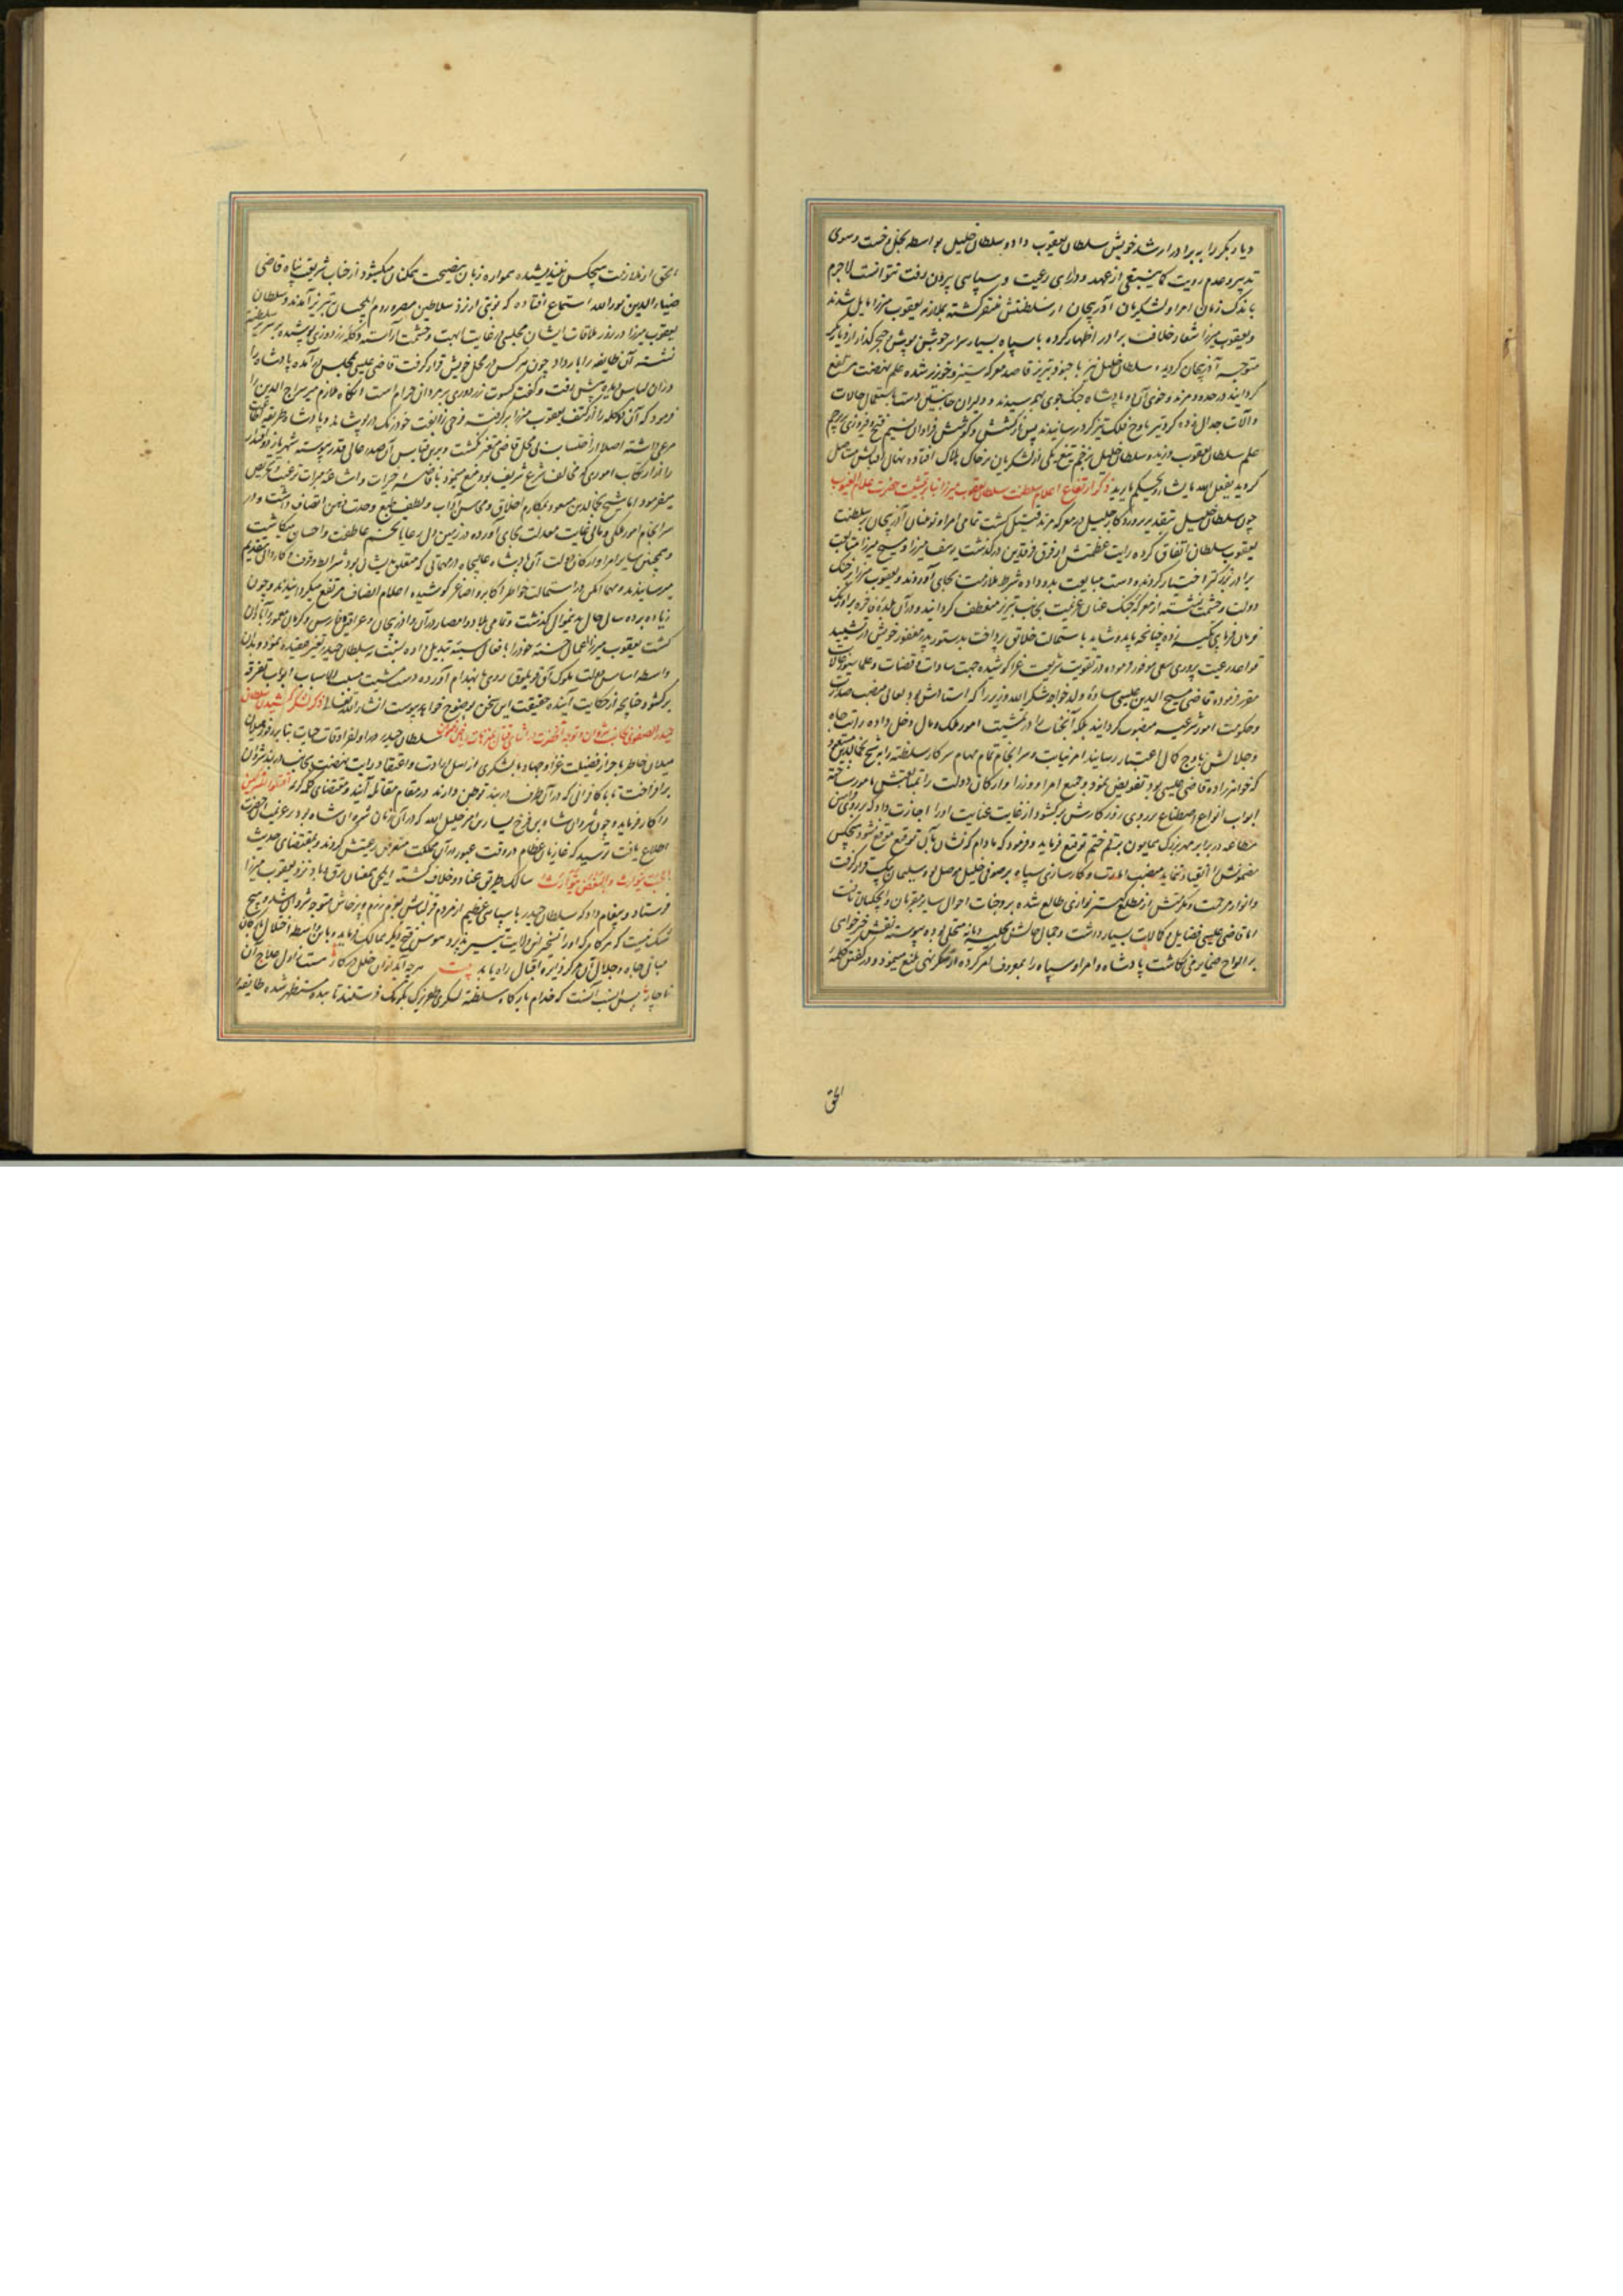 دیار بکر را به برادر ارشد خویش سلطان یعقوب داده و سلطان خلیل بواسطه بخل و خست و سوی
تدبیر و عدم رویت کما ینبغی از عهده دارای رعیت و سپاهی بیرون رفت نتوانست لاجرم
باندک زمان امرا و لشکریان آذربیجان از سلطنتش متنفر گشته بملازمت یعقوب میرزا مایل شدند
و یعقوب میرزا شعار خلاف برادر اظهار کرده با سپاه بسیار سراسر جوشن پوش و خنجر گذار از دیاربکر
متوجه آذربیجان گردید و سلطان خلیل نیز با جنود تبریز قاصد معرکه ستیز و خونریز شده علم نهضت مرتفع
گردانید در حدود مرند و خوی آن دو پادشاه جنگجوی بهم رسیدند و دلیران جانبین دست باستعمال حالات
و آلات جدال
علم سلطان یعقوب وزیده و سلطان خلیل بزخم تیغ یکی از لشکریان بر خاک هلاک افتاده نهال اقبالش مستاصل
گردید یفعل الله ما یشاء و یحکم ما یرید ذکر ارتفاع اعلام سلطنت سلطان یعقوب میرزا بنا بر مشیت حضرت علام الغیوب
چون سلطان خلیل بتقدیر پروردگار جلیل در معرکه مرند قتیل گشت تمامی امرا و نوئینان آذربیجان بر سلطنت
یعقوب سلطان اتفاق کرده رایت عظمتش از فرق فرقدین درگذشت یوسف میرزا و مسیح میرزا متابعت
برادر بزرگتر اختیار کردند و دست مبایعت بدو داده شرط ملازمت بجای آوردند و یعقوب میرزا بر خنگ
دولت و حشمت نشسته از معرکه جنگ عنان عزیمت بجانب تبریز منعطف گردانید و در آن بلده فاخره بر اورنگ
فرمان فرمایی تکیه زده چنانچه باید و شاید باستمالت خلایق پرداخت بدستور پدر مغفور خویش در تشیید
قواعد رعیت پروری سعی موفور فرموده در تقویت شریعت غرا کوشیده جهت سادات و قضات و علما سیورغالات
مقرر فرموده قاضی مسیح الدین عیسی ساوه ولد خواجه شکر الله وزیر را که استادش بود بعالی منصب صدارت
و حکومت امور شرعیه منصوب گردانید بلکه آنجناب را در تمشیت امور ملک و مال دخل داده مراتب جاه
و جلالش باوج کمال اعتبار رسانید امر نیابت و سرانجام تمام مهام سرکار سلطنت را به شیخ نجم الدین مسعود
که خواهرزاده قاضی عیسی بود تفویض نمود و جمیع امرا و وزرا و ارکان دولت را بمتابعتش مامور ساخته
ابواب انواع اصطناع بر روی روزگارش برگشود و از غایت عنایت او را اجازت داد که بر روی فرامین
مطاعه در برابر مهر بزرگ همایون بقلم ختم توقیع فرماید و فرمود که مادام که نشان بآن توقیع موقع نشود هیچکس
مضمونش را انقیاد ننماید منصب امارت و کارسازی سپاه بر صوفی خلیل موصل و سلیمان بیک قرار گرفت
و انوار مرحمت و مکرمتش از مطلع بنده نوازی طالع شده بر وجنات احوال سایر مقربان و ایچکیان تافت
اما قاضی عیسی فضایل و کمالات بسیار داشت و جمال حالش بحلیه دیانت متحلی بوده پیوسته نقش خیرخواهی
بر الواح ضمایر می نگاشت پادشاه و امرا و سپاه را بمعروف امر کرده از منکر نهی بلیغ مینمود و در گفتن کلمه
الحق
الحق از ملازمت هیچکس نیندیشیده همواره زبان بنصیحت همگنان میگشود از جناب شریعت پناه قاضی
ضیاء الدین نور الله استماع افتاده که نوبتی از نزد سلاطین مصر و روم ایلچیان به تبریز آمدند و سلطان
یعقوب میرزا در روز ملاقات ایشان مجلسی در غایت ابهت و حشمت آراسته و کله زردوزی پوشیده بر سریر سلطنت
نشسته آن طایفه را بار داد چون هر کس در محل خویش قرار گرفت قاضی عیسی بمجلس درآمده پادشاه را
در آن لباس دیده پیش رفت و گفت کسوت زردوزی بر مردان حرام است و آنگاه ملازم میر سراج الدین را
فرمود که آن کله را از کتف یعقوب میرزا برگرفت و فرجی
مرعی داشته اصلا از احتساب
را از ارتکاب اموری که مخالف شرع شریف بود منع مینمود و باقامت خیرات و اشاعه مبرات ترغیب و تحریص
میفرمود اما شیخ نجم الدین مسعود بمکارم اخلاق و محاسن آداب و لطف طبع وحدت ذهن اتصاف داشت و در
سرانجام امور ملکی و مالی غایت معدلت بجای آورده در زمین دل رعایا تخم عاطفت و احسان میکاشت
و همچنین سایر امرا و ارکان دولت آن پادشاه عالیجاه در مهماتی که متعلق بدیشان بود شرایط وقوف و کاردانی بتقدیم
میرسانیدند و مهما امکن در استمالت خواطر اکابر و اصاغر کوشیده اعلام انصاف مرتفع میگردانیدند و چون
زیاده بر ده سال حال بدینمنوال گذشت و تمامی بلاد و امصار در آن و آذربیجان و عراق و فارس و کرمان معمور و آبادان
گشت یعقوب میرزا اعمال حسنه خود را بافعال سیئه تبدیل داده نسبت به سلطان حیدر تغییر عقیده نمود و بدان
واسطه اساس دولت ملوک آق قوینلوق روی بانهدام آورده دست مشیت مسبب الاسباب ابواب تفرقه
برگشود چنانچه از حکایت آینده حقیقت این سخن بوضوح خواهد پیوست انشاء الله تعالی ذکر لشکر کشیدن سلطان
حیدر الصفوی بجانب شروان سلطان حیدر در اواخر اوقات حیات بنا بر وفور میلان
میلان خاطر باحراز فضیلت غزا و جهاد با لشکری از اهل ارادت و اعتقاد رایت نهضت بجانب دربند شروان
برافراخت تا با کافرانی که در آن طرف دربند توطن دارند در مقام مقاتله آیند و مقتضای کلمه کریمه اقتلوا المشرکین
را کار فرماید و چون شروانشاه بن فرخ یسار بن امیر خلیل الله که در آن زمان شروان شاه بود بر عزیمت آنحضرت
اطلاع یافت ترسید که غازیان عظام در وقت عبور در آن مملکت متعرض رعیتش گردند و بمقتضای حدیث
المحبت یتوارث و البغض یتوارث سالک طریق عناد و خلاف گشته ایلچی بعنان برق و باد نزد یعقوب میرزا
فرستاد و پیغام داد که سلطان حیدر با سپاهی عظیم از مردم قزلباش بعزم رزم و پرخاش متوجه شروان شده و هیچ
شک نیست که هرگاه که او را تسخیر این ولایت میسر پذیرد هوس فتح دیگر ممالک فرماید و باین واسطه اختلال بارکان
مبانی جاه و جلال آن مرکز دایره اقبال راه یابد بیت هر چه آید از آن خلل در کار هست از اول علاج آن
ناچار پس انسب آنست که خدام بارگاه سلطنت لشکری ظفر بزرگ بکومک فرستند تا بنده مستظهر شده طایفه